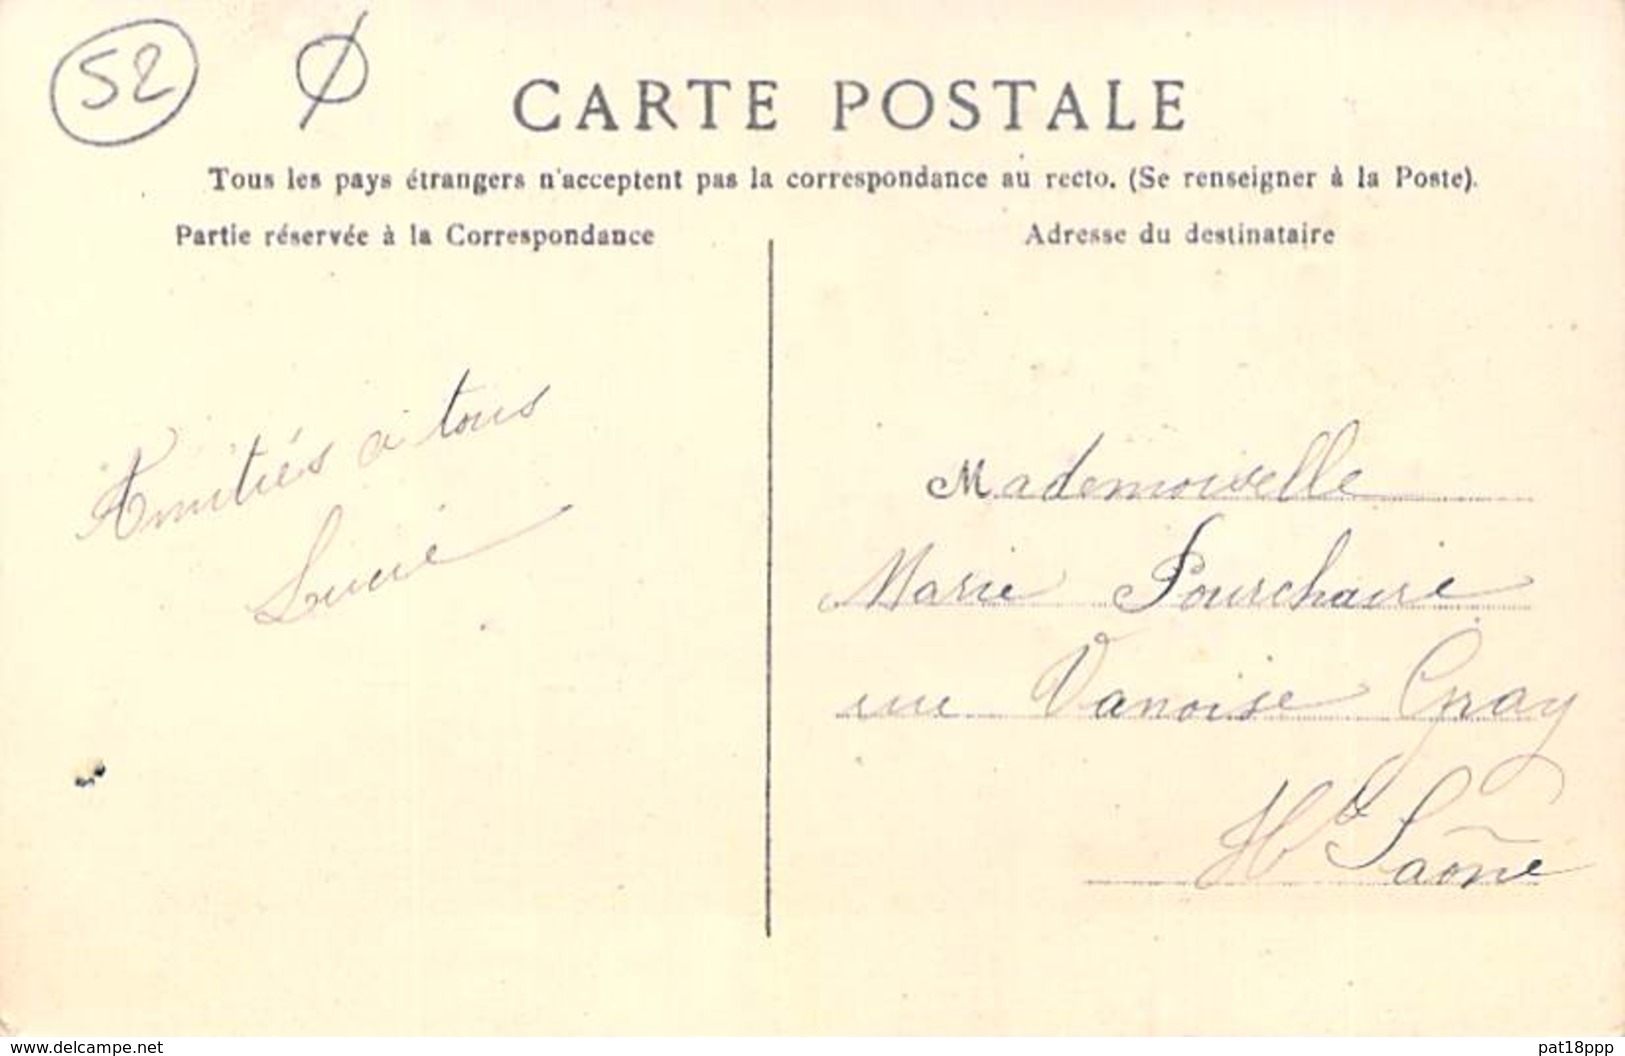 52
CARTE POSTALE
Tous les pays étrangers n'acceptent pas la correspondance au recto. (Se renseigner à la Poste).
Partie réservée à la Correspondance
Adresse du destinataire
Amitiés à tous
Lucie
Mademoiselle
Marie Pourchaire
rue Vanoise Gray
Hte Saône
www.delcampe.net
pat18ppp